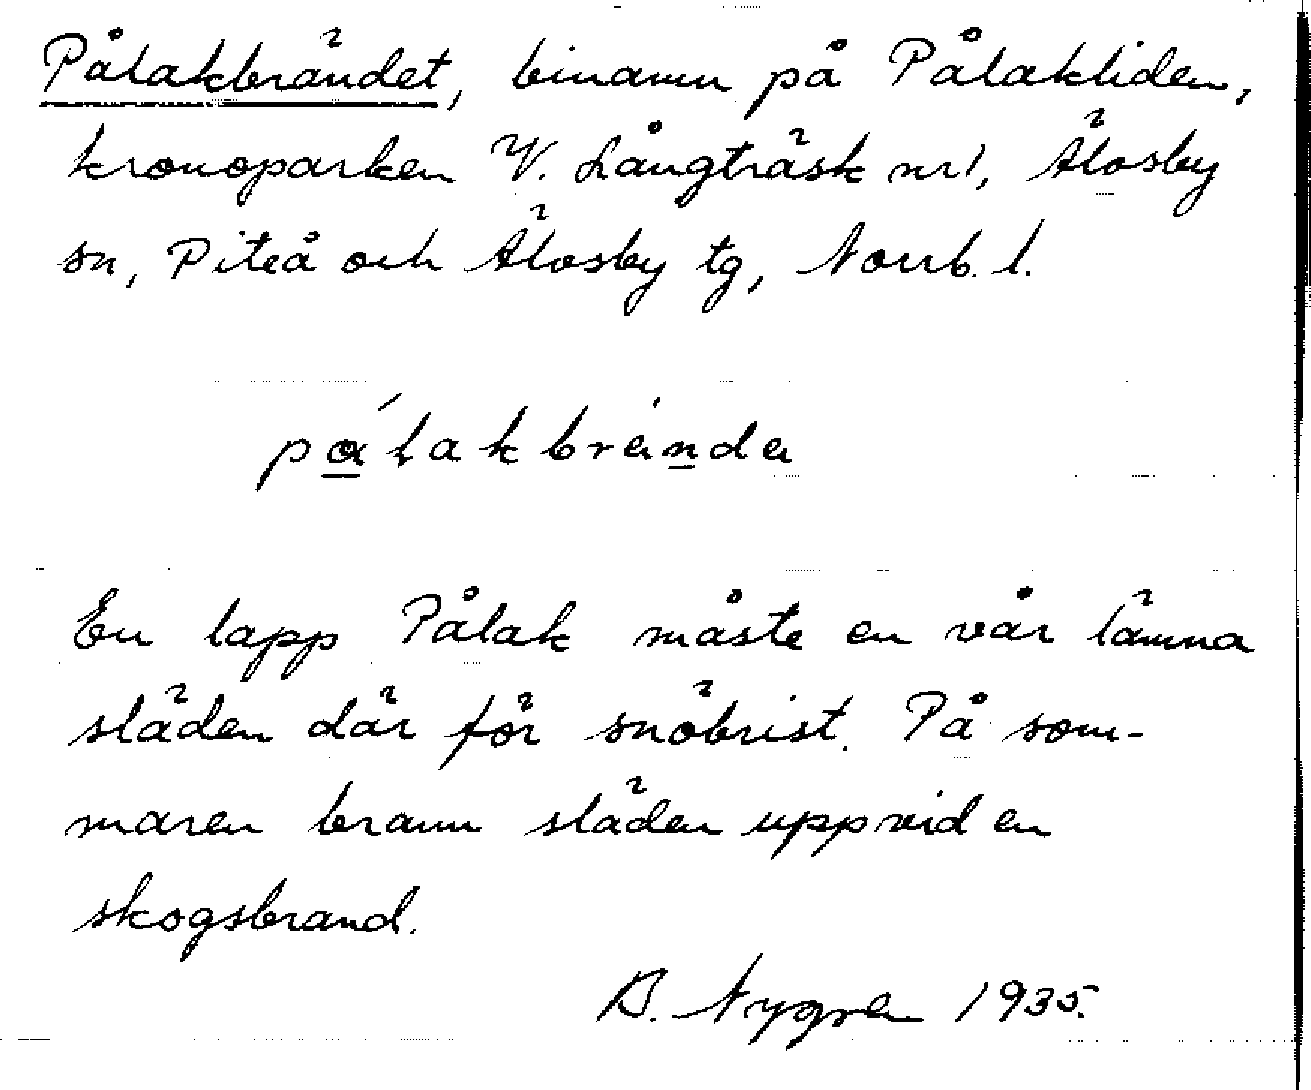 Pålakbrändet, binamn på Pålakliden,
kronoparken V. Långträsk nr 1, Älvsby
sn, Piteå och Älvsby tg, Norrb. l.
pålakbrända
En lapp Pålak måste en vår lämna
släden där för snöbrist. På som-
maren brann släden upp vid en
skogsbrand.
B. Nygren 1935.